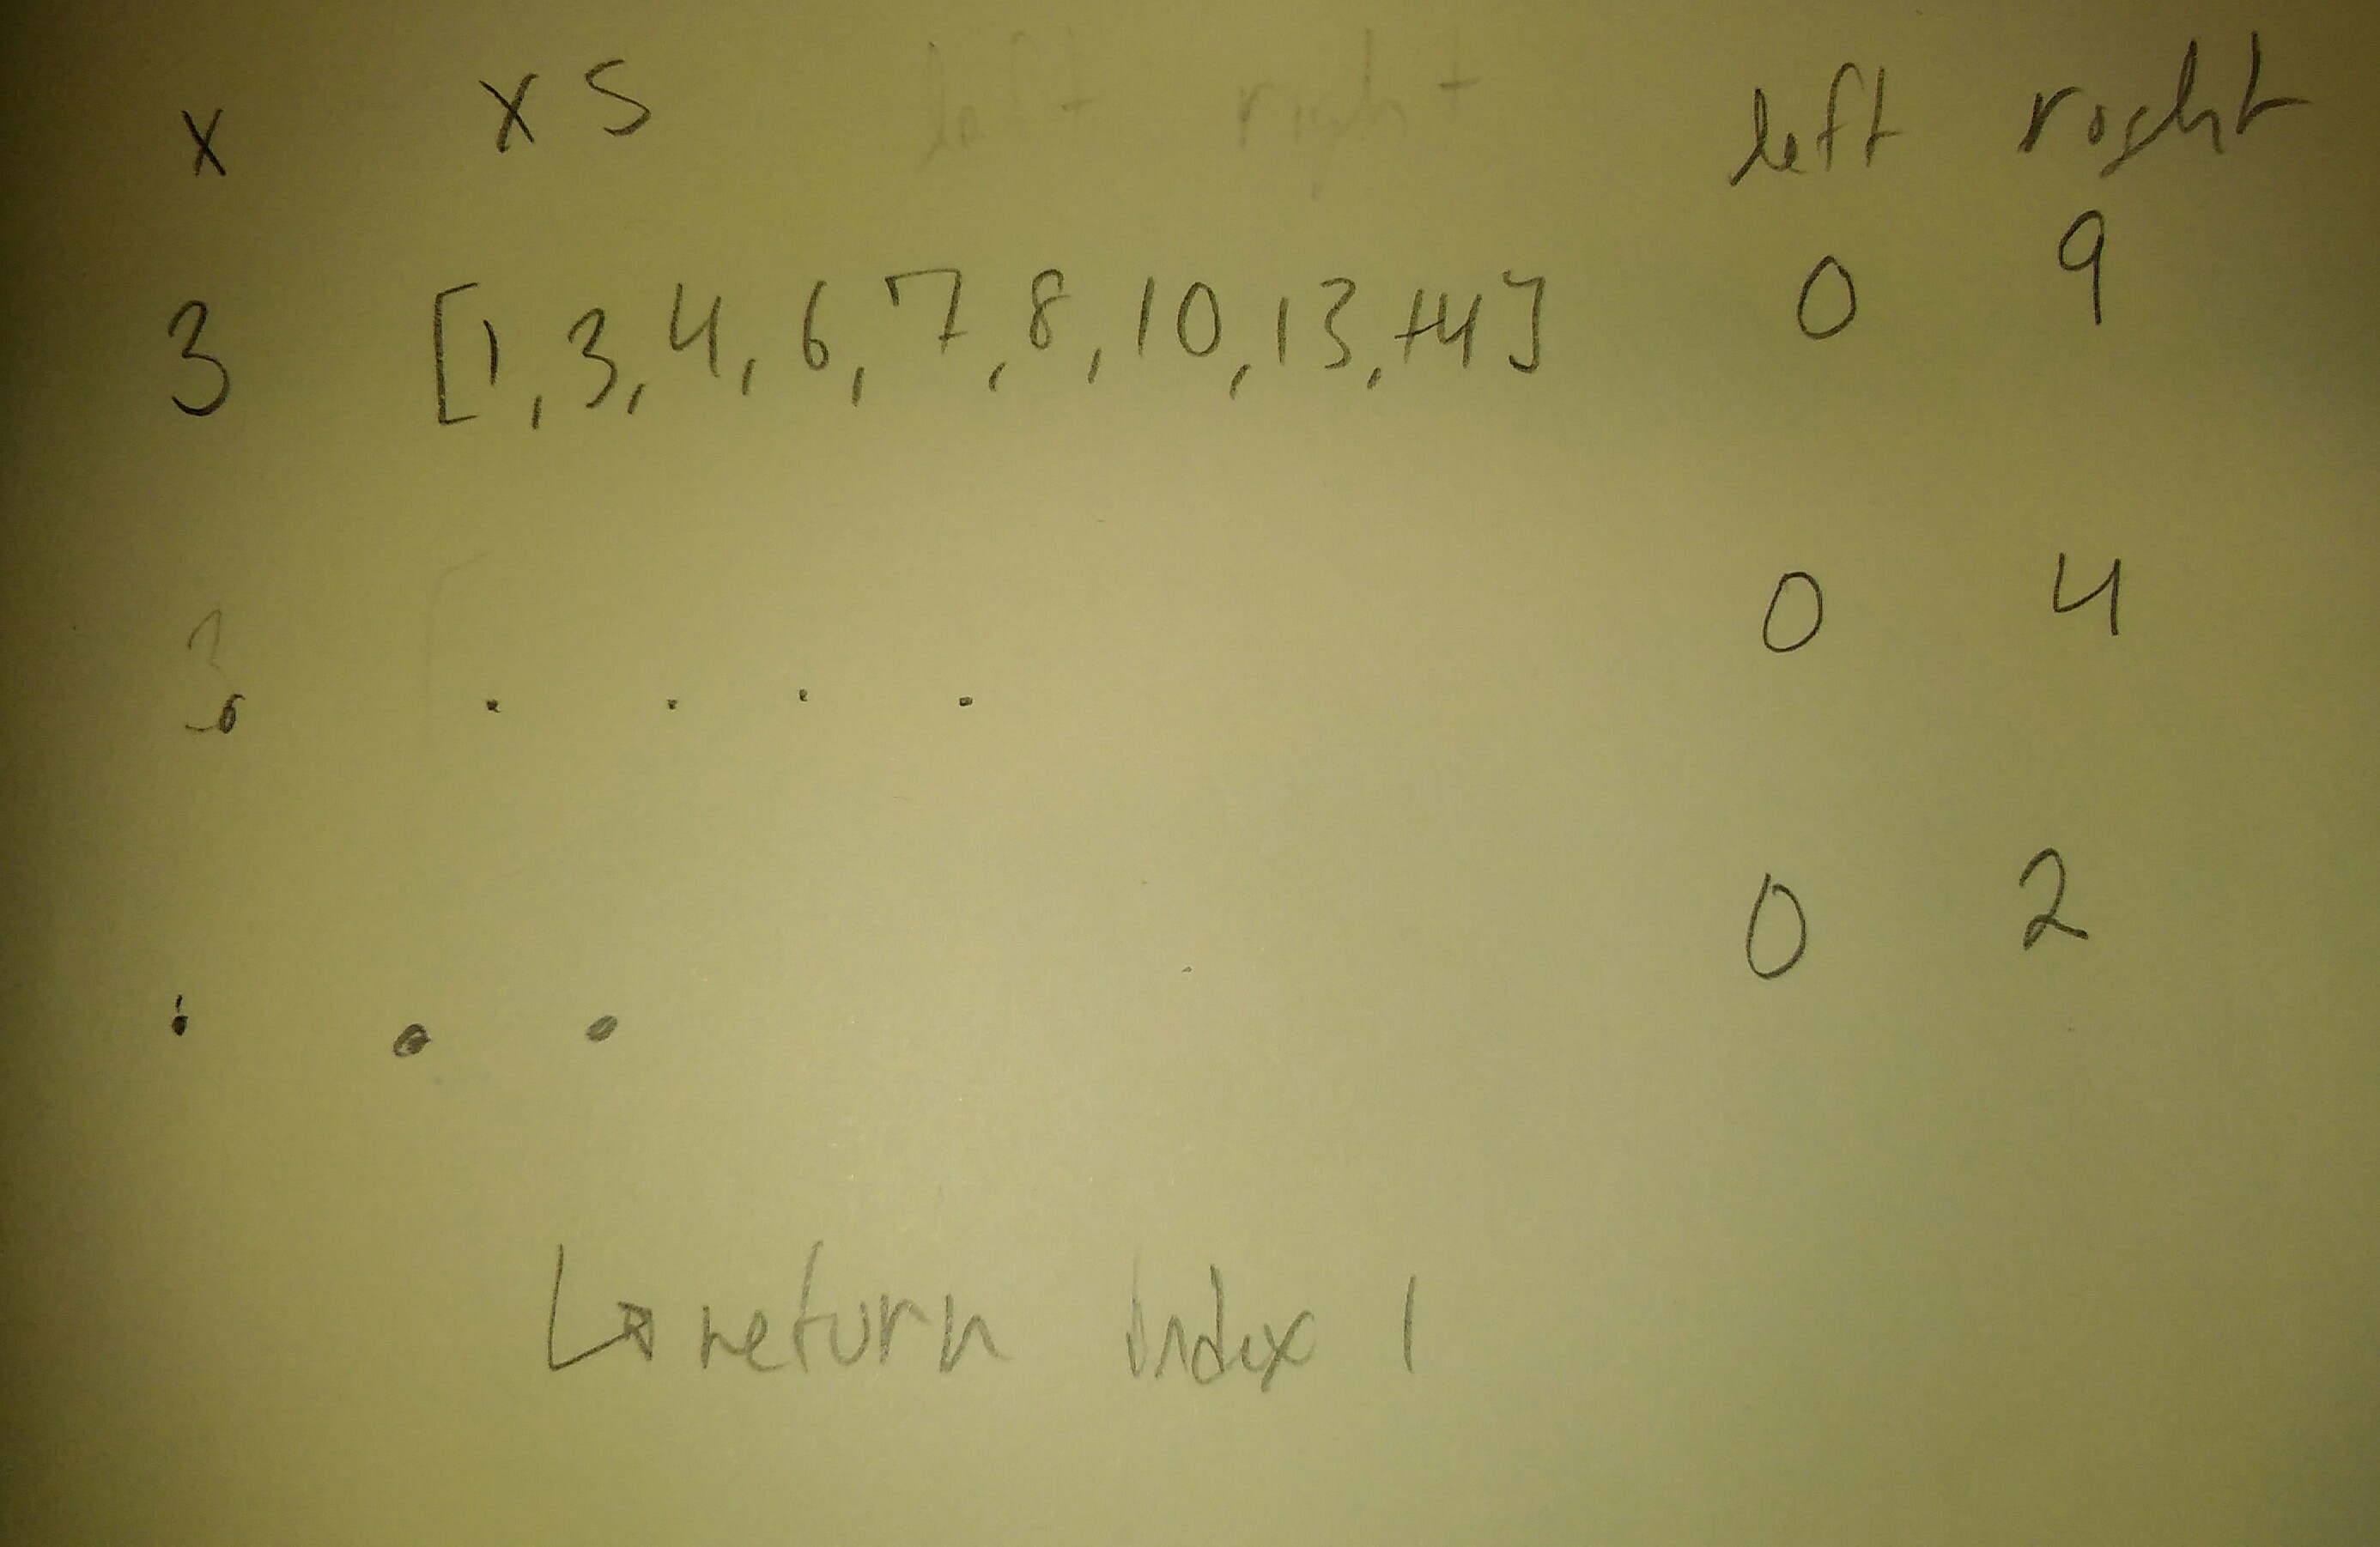 x xs left right
3 [1,3,4,6,7,8,10,13,14] 0 9
3 . . . . 0 4
. . . 0 2
↳ return Index 1